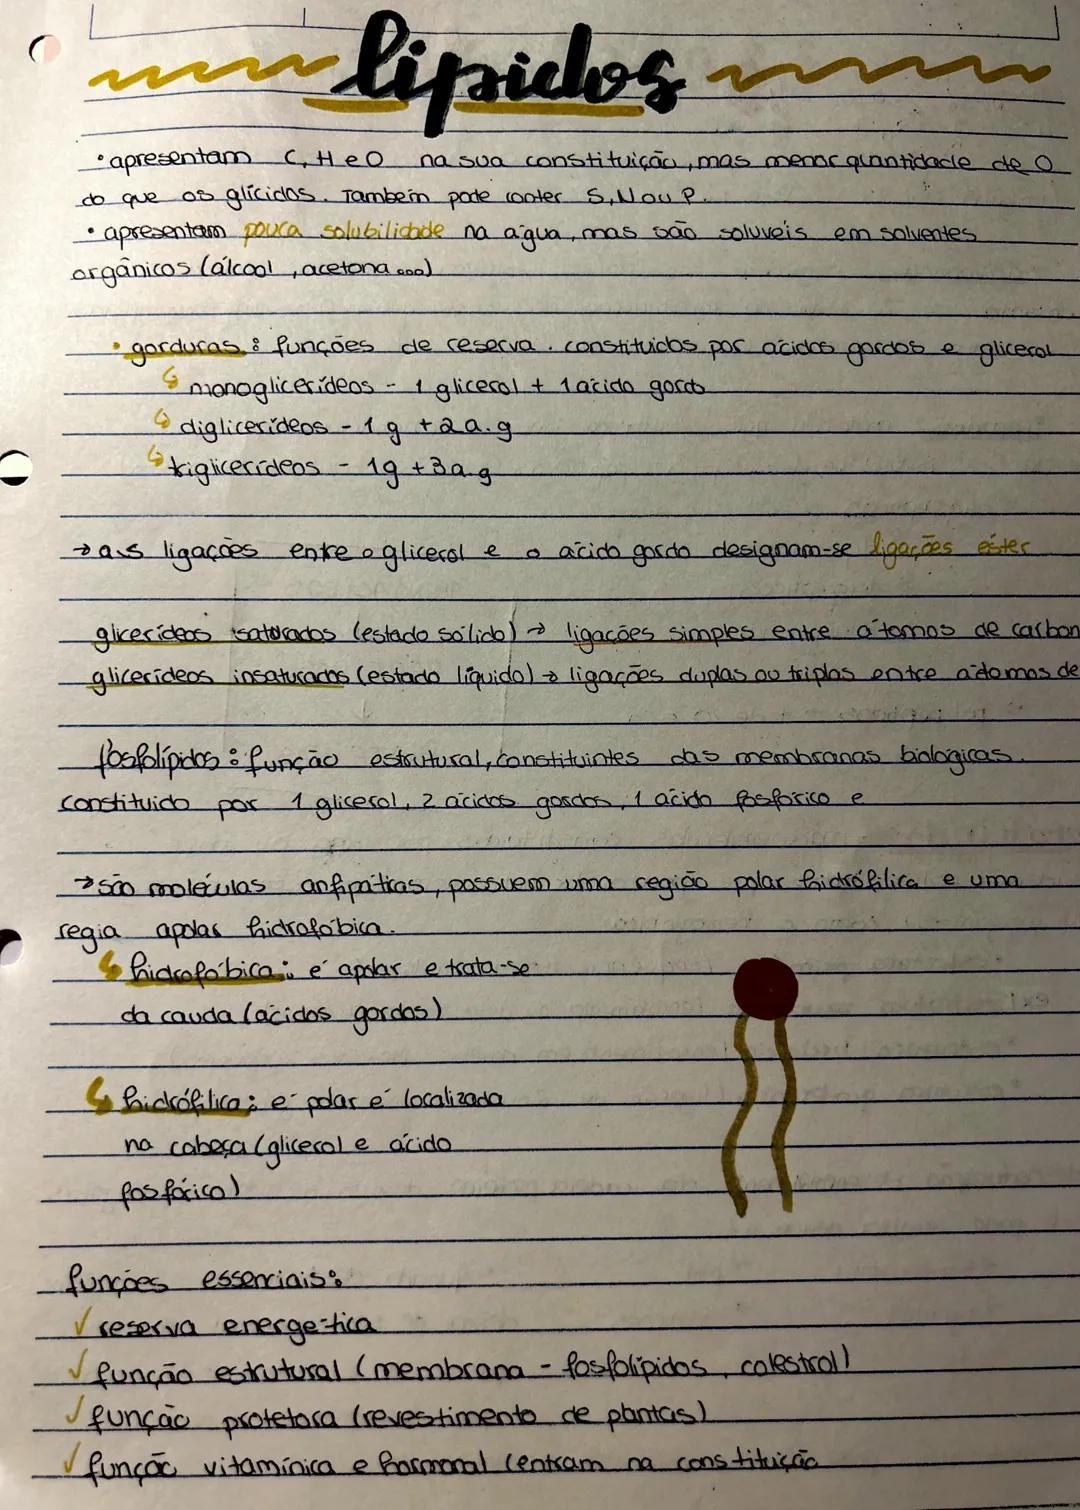 lipidos
• apresentam C, H e O na sua constituição, mas menor quantidade de O
do que os glícidos. Também pode conter S, N ou P.
• apresentam pouca solubilidade na água, mas são solúveis em solventes
orgânicos (álcool, acetona...)
• gorduras: funções de reserva. constituidos por ácidos gordos e glicerol
↳ monoglicerídeos - 1 glicerol + 1 ácido gordo
↳ diglicerídeos - 1 g + 2 a.g
↳ triglicerídeos - 1g + 3 a.g
→ as ligações entre o glicerol e o ácido gordo designam-se ligações éster
glicerídeos saturados (estado sólido) → ligações simples entre átomos de carbon
glicerídeos insaturados (estado líquido) → ligações duplas ou triplas entre átomos de
fosfolípidos: função estrutural, constituintes das membranas biológicas.
constituido por 1 glicerol, 2 ácidos gordos, 1 ácido fosfórico e
→ são moléculas anfipáticas, possuem uma região polar hidrófilica e uma
regia apolar hidrofóbica.
↳ hidrofóbica: é apolar e trata-se
da cauda (ácidos gordos)
↳ hidrófilica: é polar é localizada
na cabeça (glicerol e ácido
fosfórico)
funções essenciais:
✓ reserva energética
✓ função estrutural (membrana - fosfolípidos, colestrol)
✓ função protetora (revestimento de plantas)
✓ função vitamínica e hormonal (entram na constituição